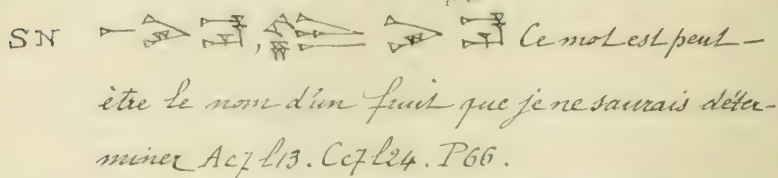 SN Ce mot est peut-
être le nom d'un fruit que je ne saurais déter-
miner Ac7 l13. Cc7 l24. P66.